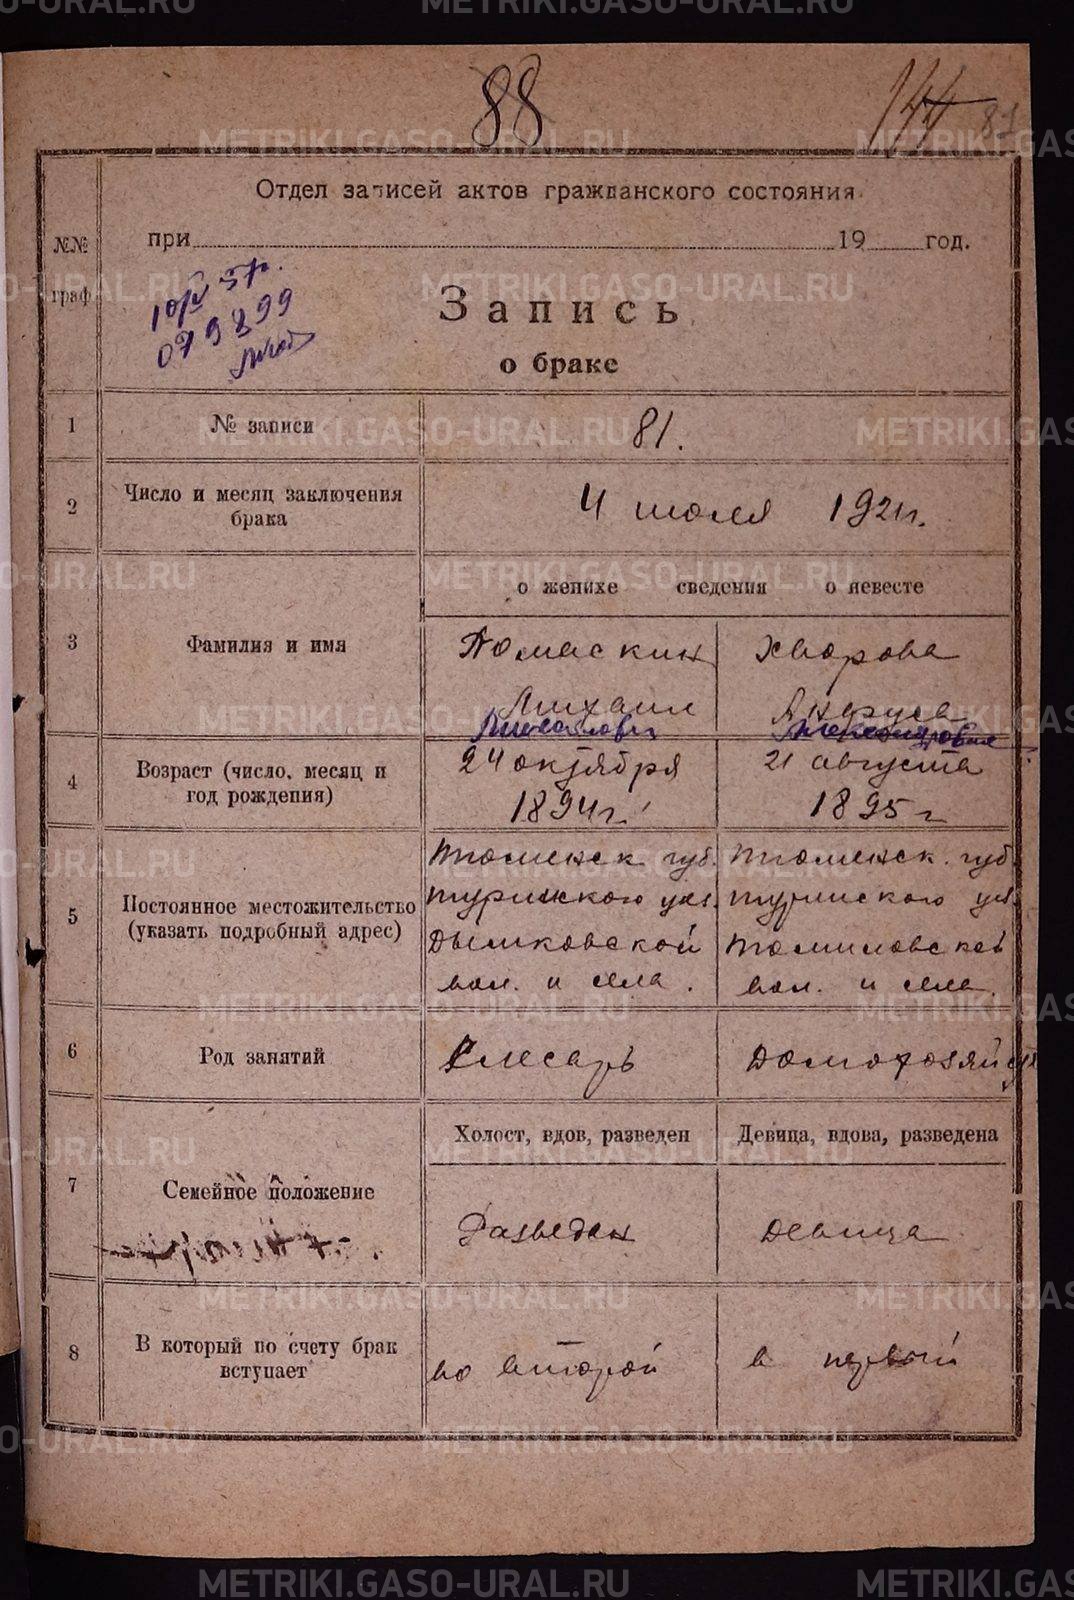 88
144
81
Отдел записей актов гражданского состояния
№№ граф.
при 19 год.
10/IV 57г.
079899
Запись
о браке
1 № записи 81.
2 Число и месяц заключения брака 4 июля 192 г.
о женихе сведения о невесте
3 Фамилия и имя
Томаскин Хворова
Михаил
Михайлович Александровна
4 Возраст (число, месяц и год рождения)
24 октября 21 августа
1894г. 1895 г
5 Постоянное местожительство (указать подробный адрес)
Тюменск губ. Тюменск. губ.
Туринского уез. Туринского уез.
Дымковской Томиловской
вол. и села. вол. и села.
6 Род занятий Слесарь Домохозяйка
Холост, вдов, разведен Девица, вдова, разведена
7 Семейное положение
Разведен Девица
8 В который по счету брак вступает
во второй в первый
METRIKI.GASO-URAL.RU